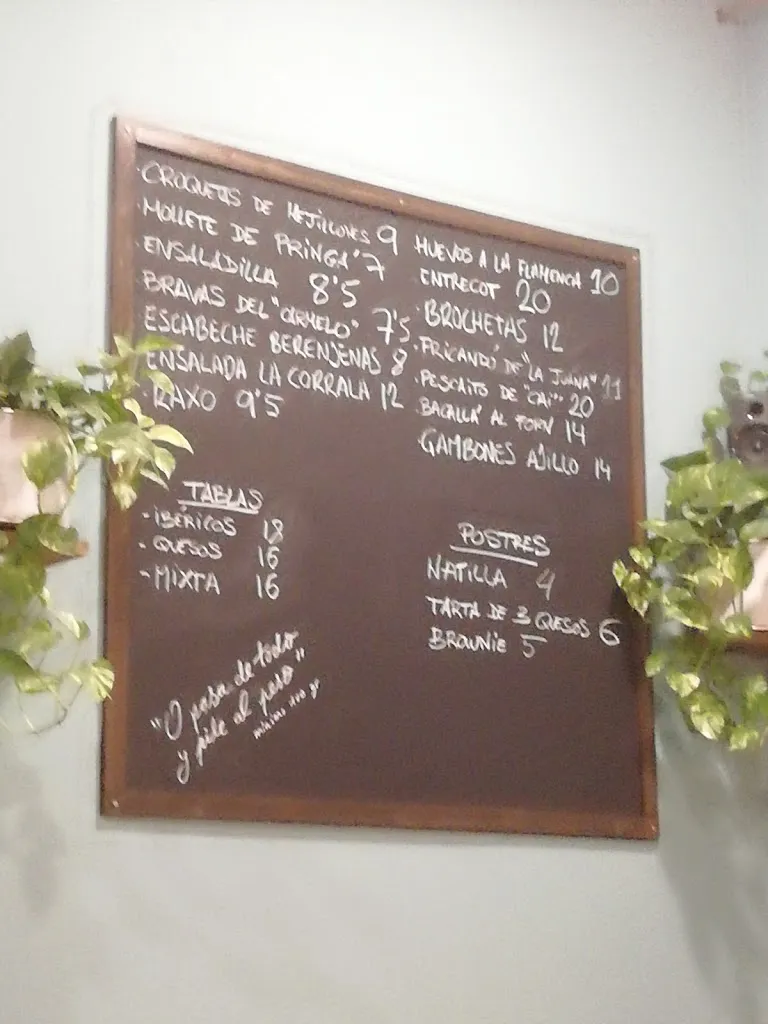 ·CROQUETAS DE MEJILLONES 9
·MOLLETE DE PRINGA' 7
ENSALADILLA 8'5
BRAVAS DEL "CARMELO" 7'5
ESCABECHE BERENJENAS 8
ENSALADA LA CORRALA 12
·RAXO 9'5
TABLAS
-IBÉRICOS 18
-QUESOS 16
-MIXTA 16
"O pasa de todo
y pide al peso"
HUEVOS A LA FLAMENCA 10
ENTRECOT 20
·BROCHETAS 12
·FRICANDÓ DE "LA JUANA" 11
·PESCAITO DE "CAI" 20
BACALLÀ AL FORN 14
GAMBONES AJILLO 14
POSTRES
NATILLA 4
TARTA DE 3 QUESOS 6
BROWNIE 5